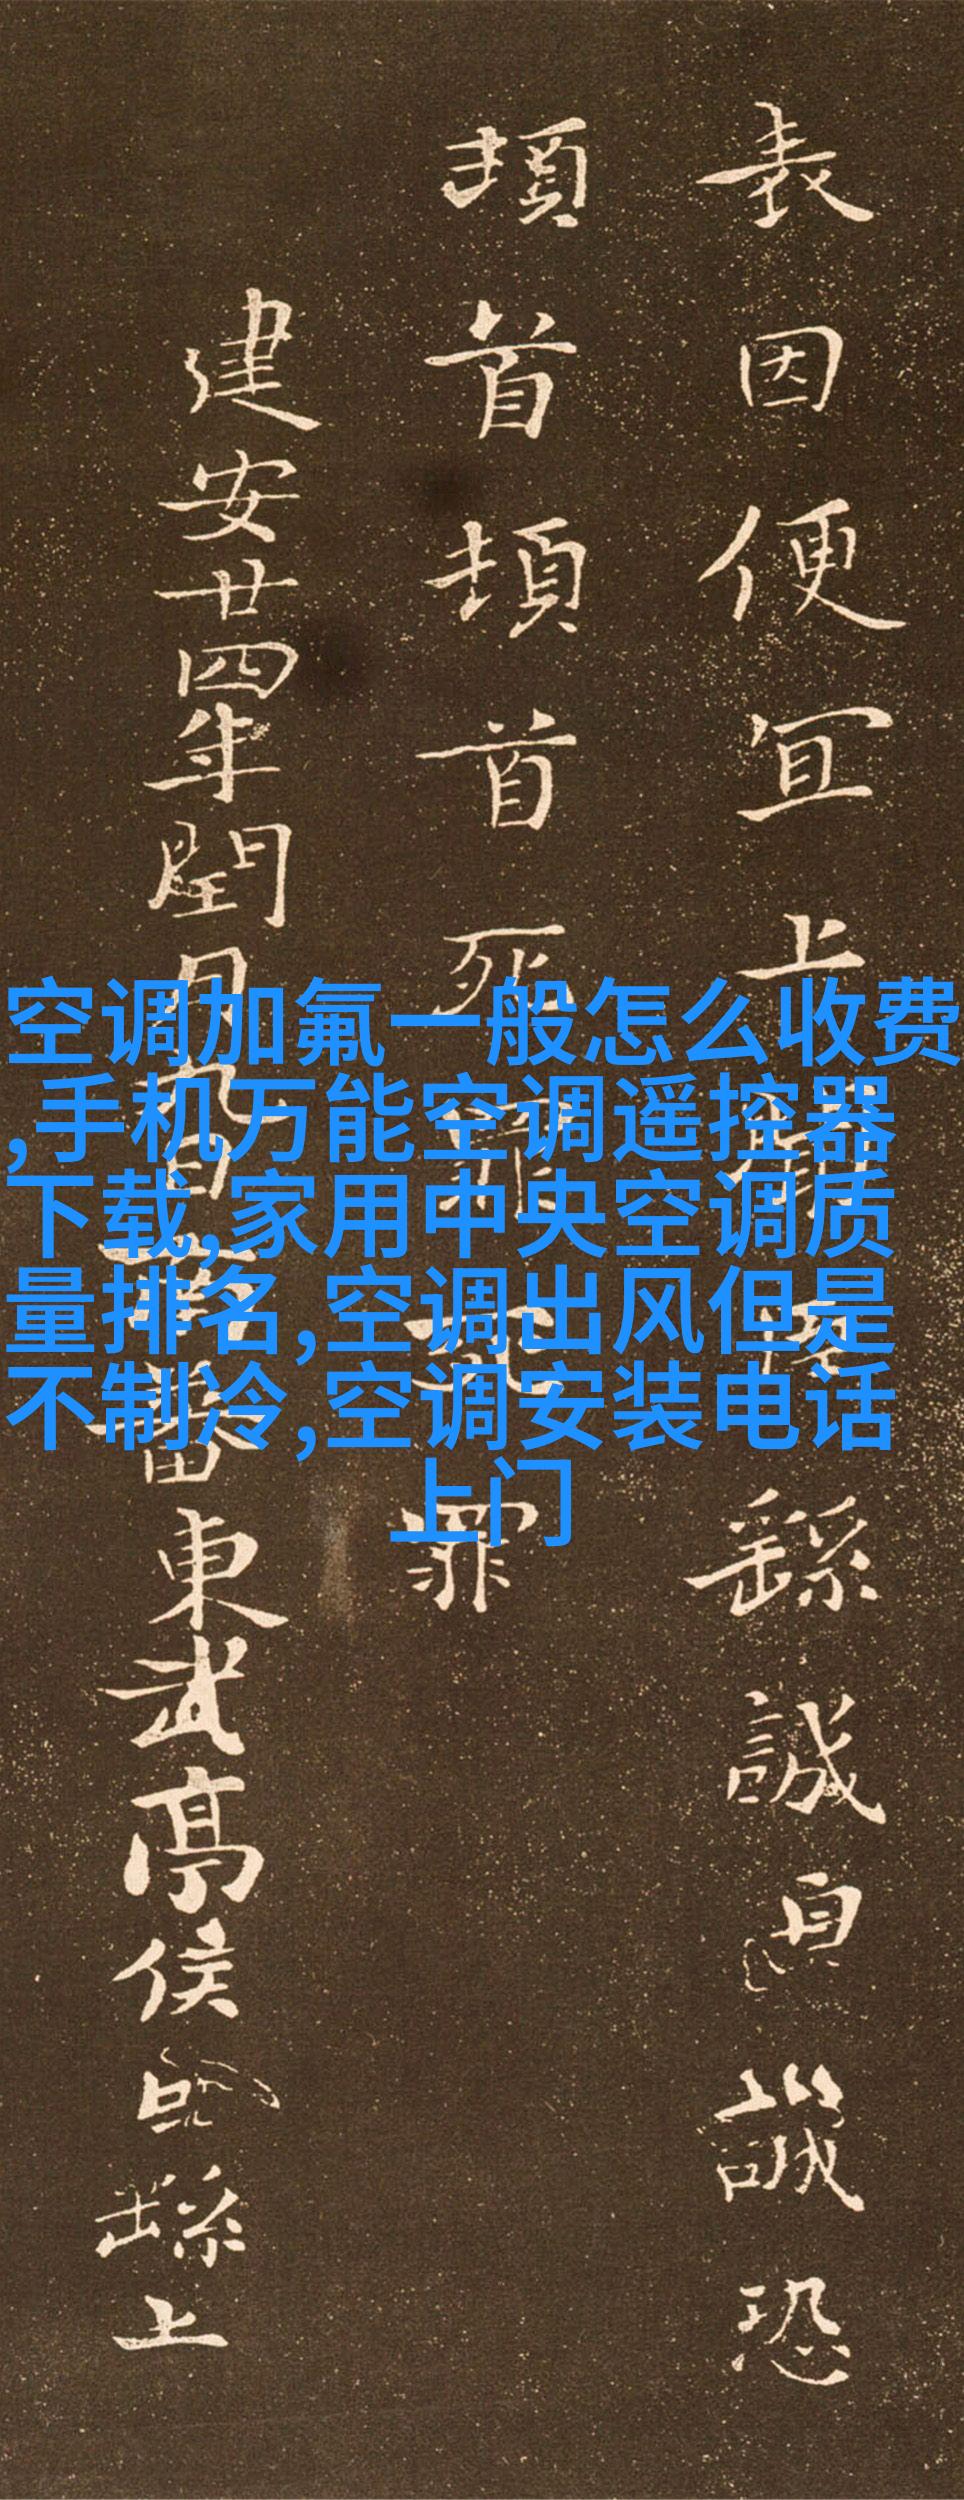 表因便宜上繇誠誠恐
頓首頓首死罪死罪
建安廿四年閏月九日南蕃東武亭侯臣繇上
空调加氟一般怎么收费
,手机万能空调遥控器
下载,家用中央空调质
量排名,空调出风但是
不制冷,空调安装电话
上门